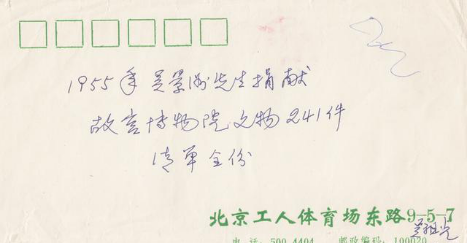 1955年吴景洲先生捐献
故宫博物院文物241件
清单全份
北京工人体育场东路9-5-7
电话:500.4404 邮政编码:100020